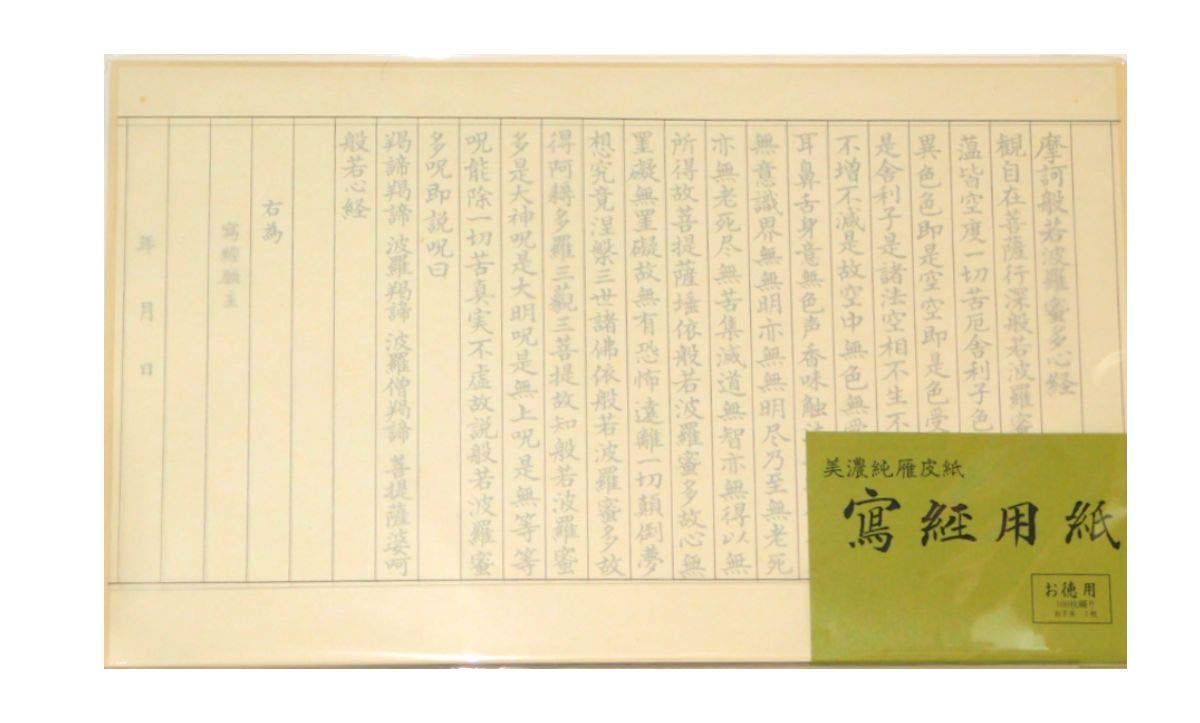 摩訶般若波羅蜜多心経
観自在菩薩行深般若波羅蜜
蘊皆空度一切苦厄舎利子色
異色色即是空空即是色受
是舎利子是諸法空相不生不
不増不減是故空中無色無
耳鼻舌身意無色声香味触
無意識界無無明亦無無明尽乃至無老死
亦無老死尽無苦集滅道無智亦無得以無
所得故菩提薩埵依般若波羅蜜多故心無
罣礙無罣礙故無有恐怖遠離一切顛倒夢
想究竟涅槃三世諸佛依般若波羅蜜多故
得阿耨多羅三藐三菩提故知般若波羅蜜
多是大神呪是大明呪是無上呪是無等等
呪能除一切苦真実不虚故説般若波羅蜜
多呪即説呪曰
羯諦羯諦 波羅羯諦 波羅僧羯諦 菩提薩婆呵
般若心経
右為
寫經願主
年 月 日
美濃純雁皮紙
寫経用紙
お徳用
100枚綴り